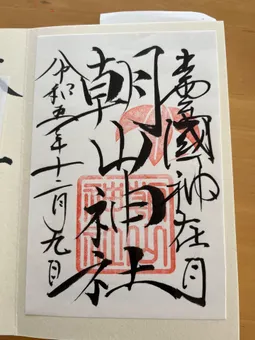 出雲國神在月
朝山神社
令和五年十二月九日